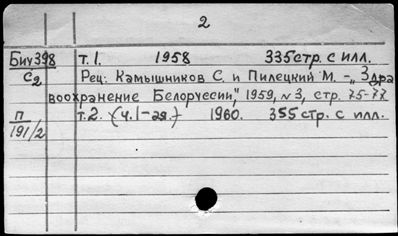 2
Бич398 т. 1. 1958 335стр. с илл.
С2 Рец: Камышников С. и Пилецкий М. - „Здра
воохранение Белоруссии", 1959, N3, стр. 75-77
П т. 2. (ч. 1-ая.) 1960. 355 стр. с илл.
191/2